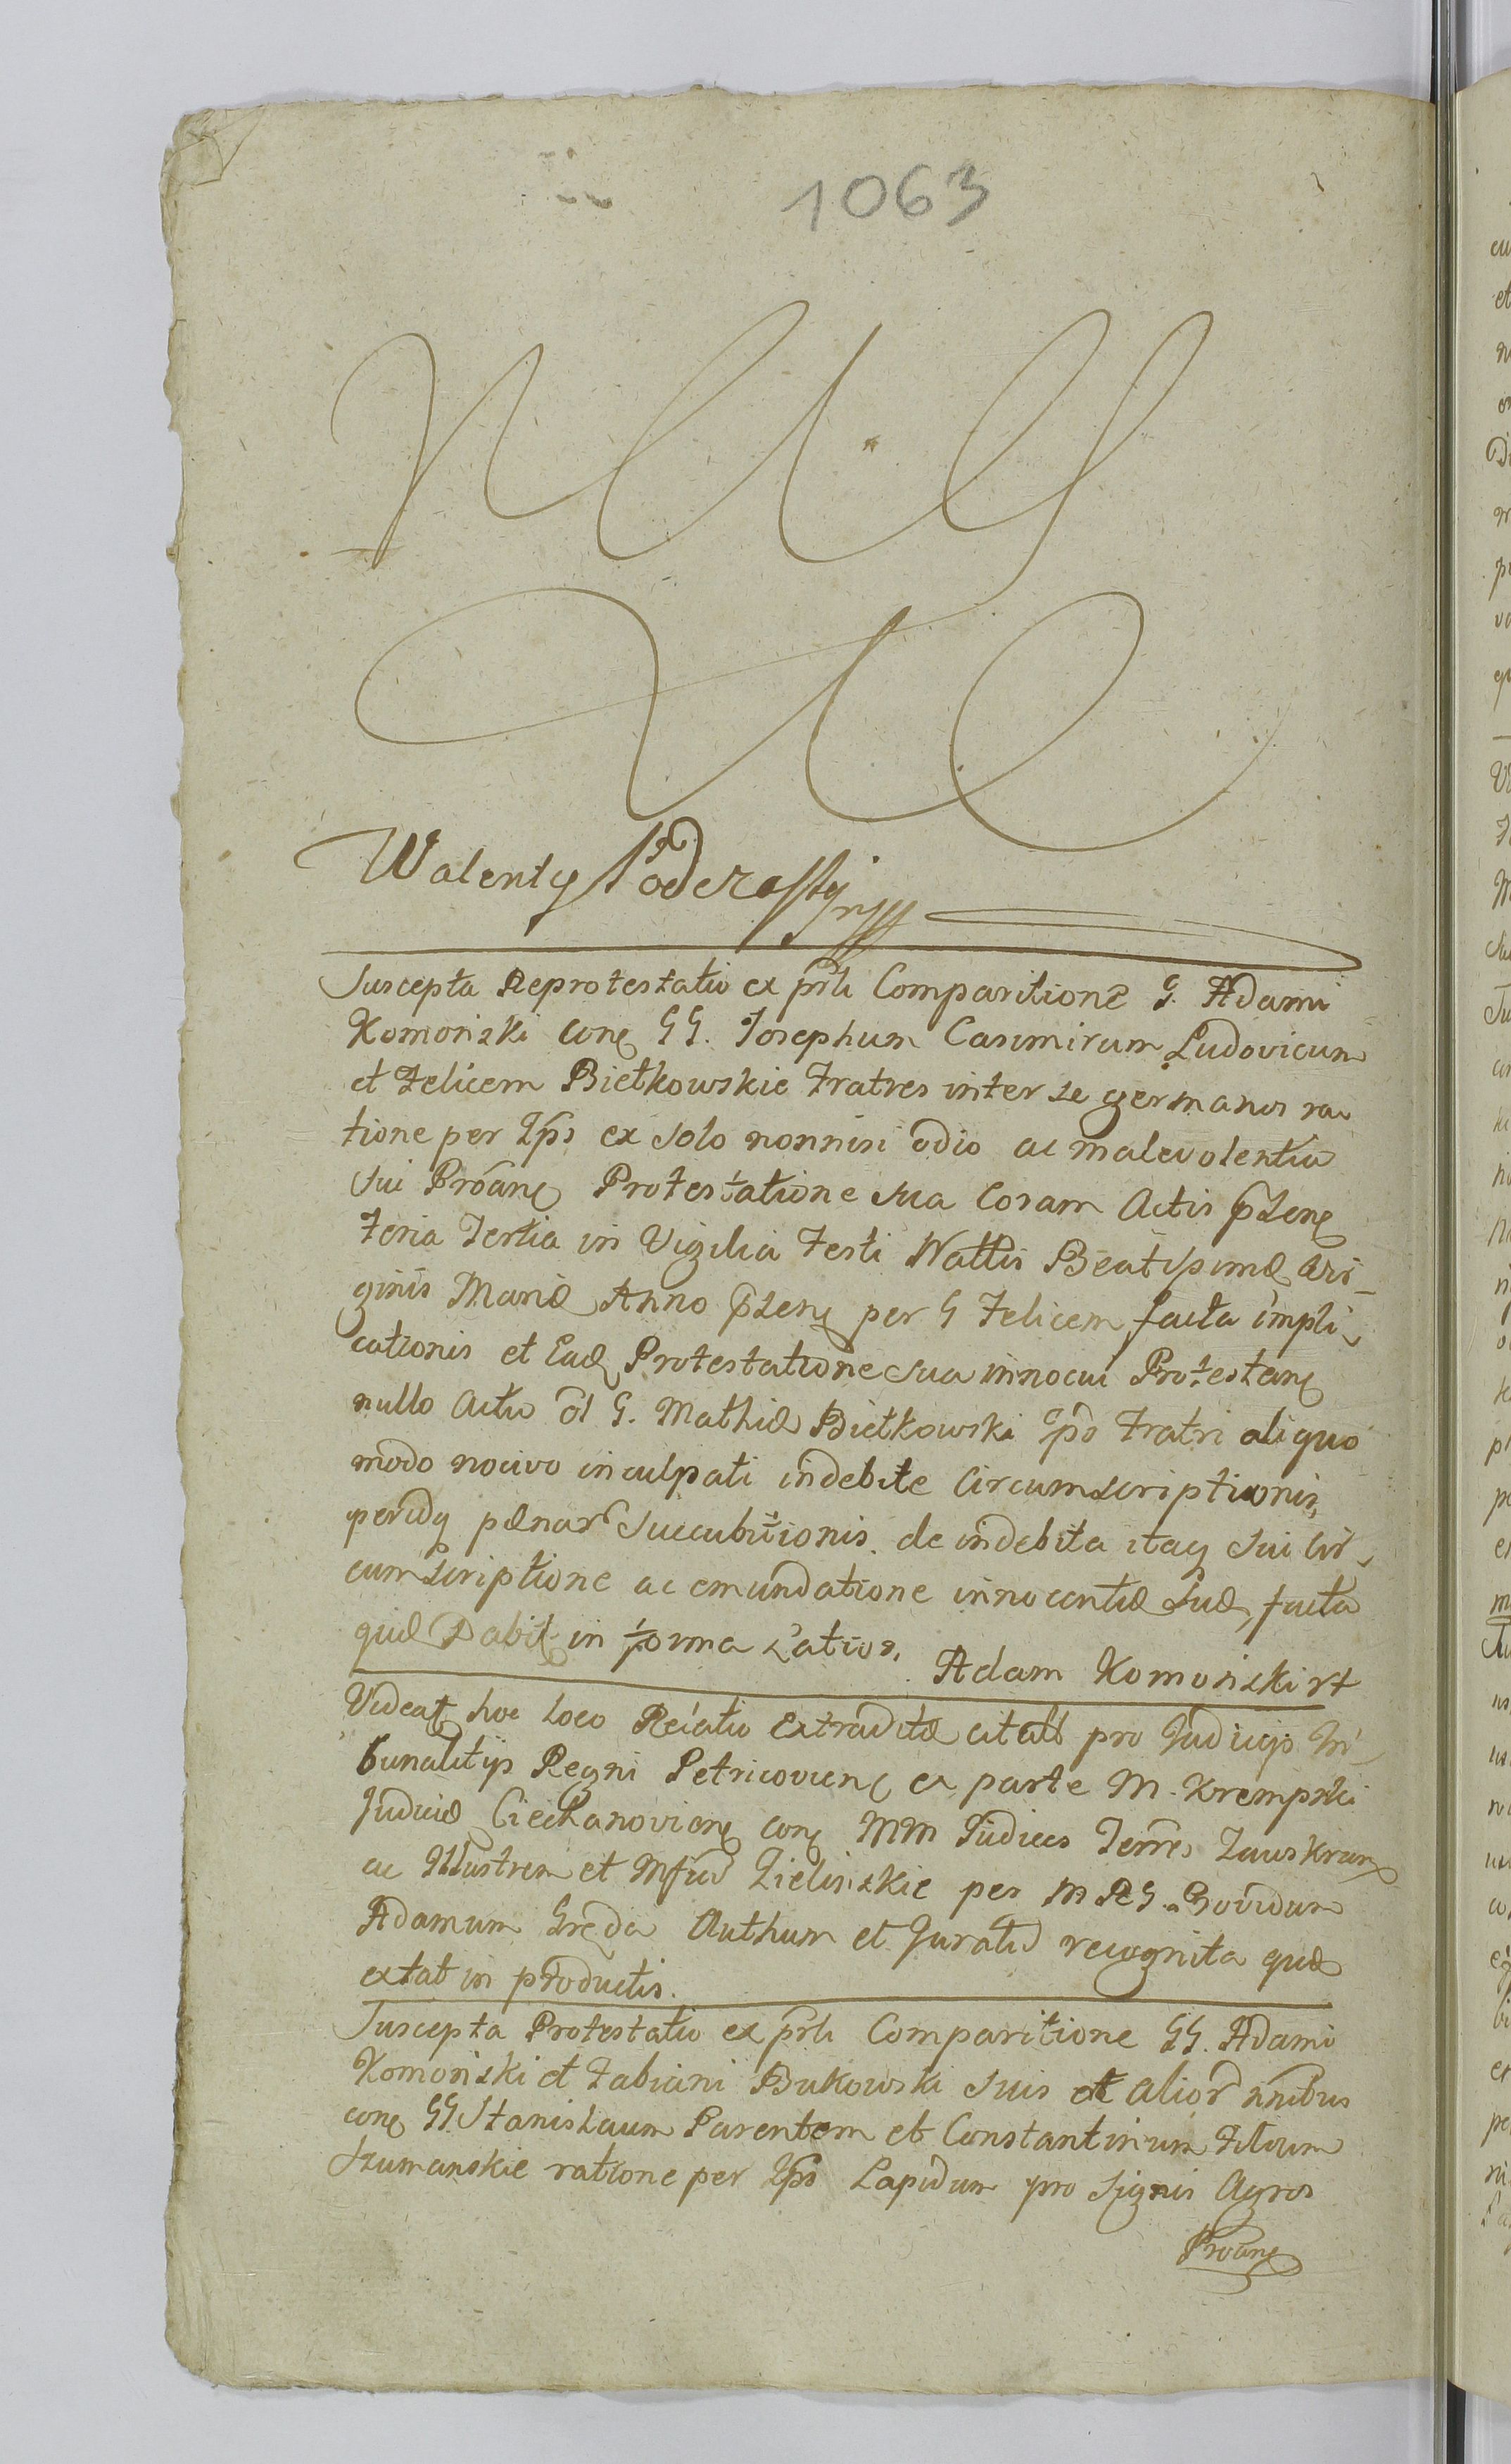 1063
Walenty Poderasky
Suscepta Reprotestatio ex prsti Comparitione G. Adami
Komoński conq GG. Josephum Casimirum Ludovicum
et Felicem Bietkowskie Fratres inter se germanos ra
tione per Ips ex solo nonnisi odio ac malevolentia
sui Proanq Protestatione sua Coram Actis pstenq
Feria Tertia in Vigilia Festi Nattis Beatissimæ Vir
ginis Mariæ Anno pstenq per G Felicem facta impli
cationis et Eadq Protestatione sua innocui Protestanq
nullo actu ol G. Mathiæ Bietkowski Ips Fratri aliquo
modo nocivo inculpati indebite Circumscriptionis,
perdq pænar succubitionis. de indebita itaq sui Cir
cumscriptione ac emundatione innocentiæ suæ, facta
quæ Dabit in forma Latior. Adam Komoński rt
Videatq hoc loco Rełatio Extraditæ citatt pro Judicijs Tri
bunalitijs Regni Petricovienq ex parte M. Krempski
Judicis Ciechanovienq conq MM Judices Terres Zawskren
ac Illustrem et Mfcu Zielinskie per M R G. Providum
Adamum Gręda Authum et Juratu recognita quæ
extat in productis.
Suscepta Protestatio ex prsti Comparitione GG. Adami
Komoński et Fabiani Bukowski suis et alior nnibus
conq GG Stanislaum Parentem et Constantinum Filium
Szumanskie ratione per Ips Lapidum pro signis Agros
Proanq